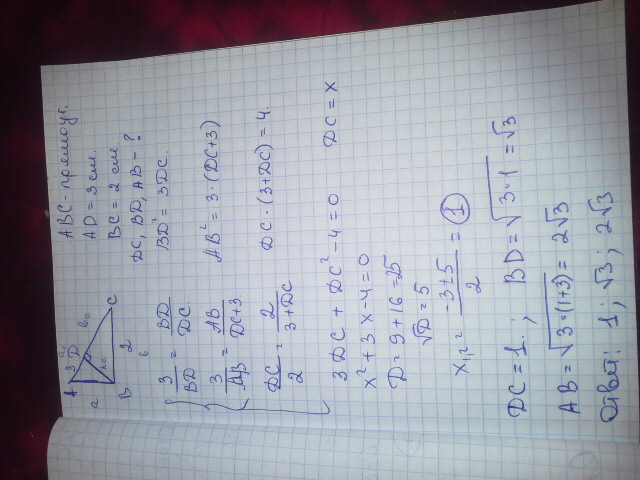 ABC - прямоуг.
AD = 3 см.
BC = 2 см.
DC, BD, AB - ?
A
a
3
D
B
2
C
3/BD = BD/DC
BD² = 3DC.
3/AB = AB/DC+3
AB² = 3·(DC+3)
DC/2 = 2/3+DC
DC·(3+DC) = 4.
3DC + DC² - 4 = 0
DC = x
x² + 3x - 4 = 0
D = 9 + 16 = 25
√D = 5
x₁,₂ = -3±5/2 = 1
DC = 1. ; BD = √3·1 = √3
AB = √3·(1+3) = 2√3
Ответ: 1; √3; 2√3